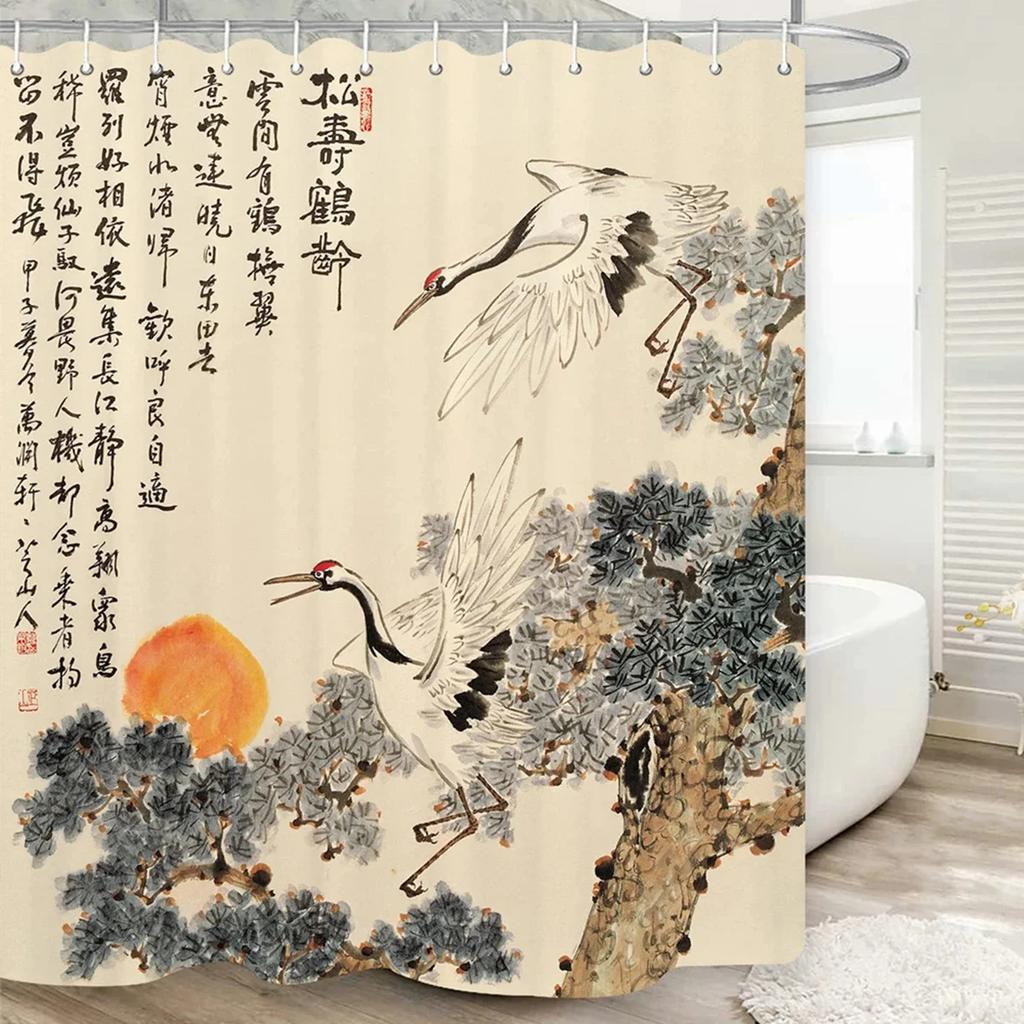 松壽鶴齡
雲間有鶴掩翼
意無違曉日東田去
宵煙水渚歸 歡呼良自適
羅列好相依遠集長江靜高翔眾鳥
稀豈煩仙子馭何畏野人機卻念乘者拘
留不得飛 甲子暮冬萬澗軒 山人